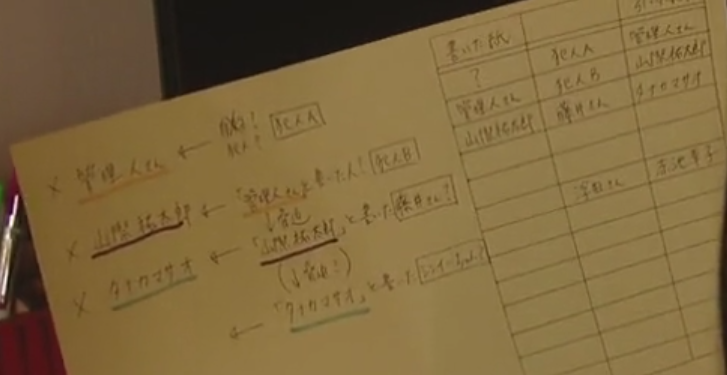 × 管理人さん ← 犯人? 犯人A
× 山際祐太郎 ← 「管理人さん」と書いた人! 犯人B
↓脅迫
× タナカマサオ ← 「山際祐太郎」と書いた 藤井さん?
← 「タナカマサオ」と書いた
書いた紙
? 犯人A 管理人さん
管理人さん 犯人B 山際祐太郎
山際祐太郎 藤井さん タナカマサオ
浮田さん 赤池幸子